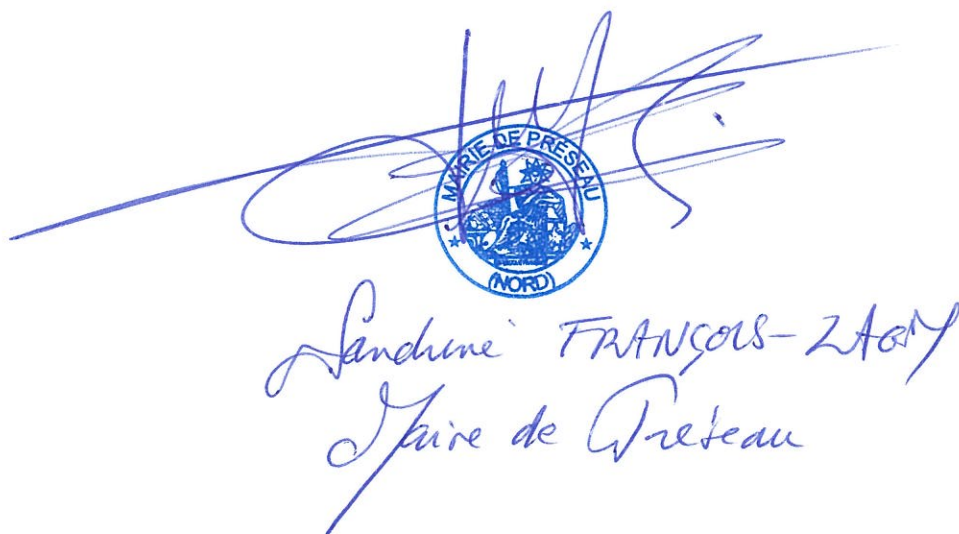 MAIRIE DE PRÉSEAU
(NORD)
Sandrine FRANÇOIS-
Maire de Préseau